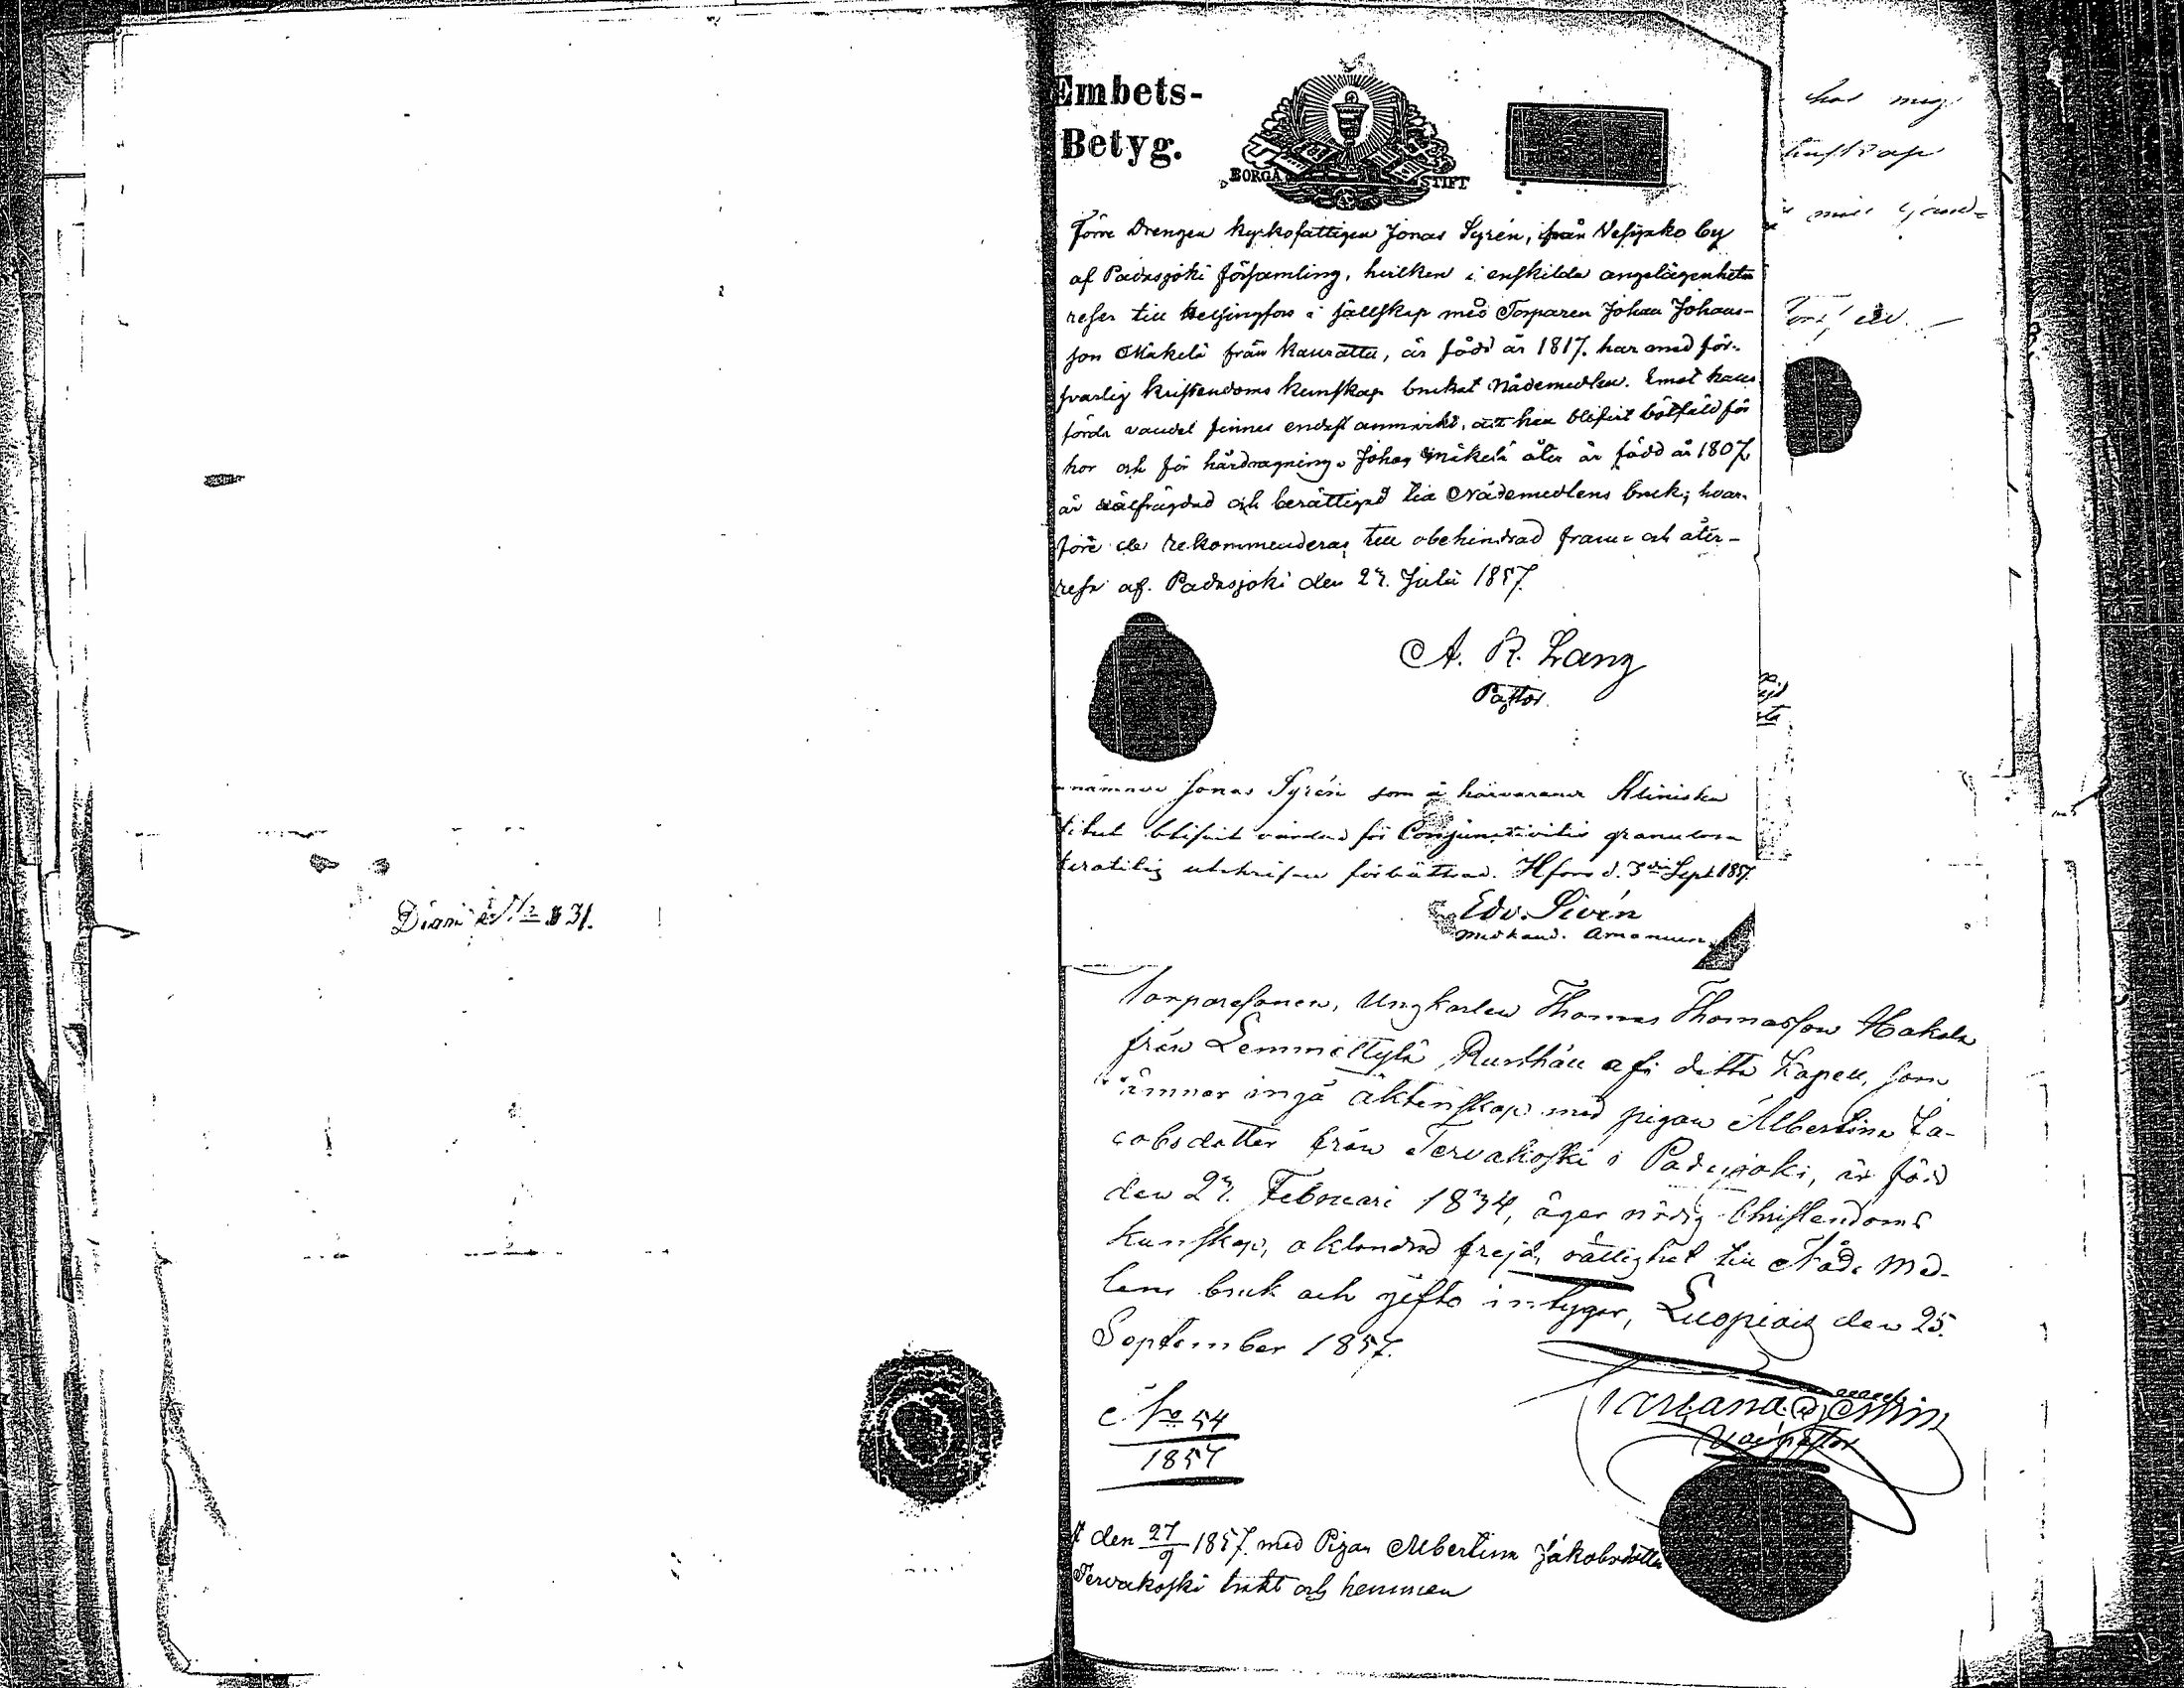 Diari No 831.
Embets-
Betyg.
BORGÅ STIFT
Förre Drengen kyrkofattigen Jonas Syrén, från Vesijako by
af Padasjoki församling, hvilken i enskilda angelägenheter
reser till Helsingfors i sällskap med Torparen Johan Johans-
son Mäkelä från Kauratta, är född år 1817. har med för-
svarlig kristendoms kunskap brukat Nådemedlen. Emot hans
förda vandel finnes endast anmärkt, att han blifvit bötfäld för
hor och för hårdragning. Johan Mäkelä åter är född år 1807,
är välfrägdad och berättigad till Nådemedlens bruk; hvar-
före de rekommenderas till obehindrad fram- och åter-
resa af. Padasjoki den 27. Julii 1857.
A. R. Lang
Pastor.
Jonas Syrén som å härvarande Kliniska
blifvit vårdad för Conjunctivitis granulosa
utskrifven förbättrad. Hfors d. 3 Sept 1857.
Edv. Sivén
Med kand. Amanuens.
Torparesonen, Ungkarlen Thomas Thomasson Hakala
från Lemmettylä Rusthåll af detta Kapell, som
ämnar ingå äktenskap med pigan Albertina Ja-
cobsdotter från Tervakoski i Padasjoki, är född
den 27. Februari 1834, äger nödig Christendoms
kunskap, oklandrad frejd, rättighet till Nåde Med-
lens bruk och gifto intygar, Luopiois den 25.
September 1857.
No 54
1857
den 27/9 1857 med Pigan Albertina Jakobsdotter
Tervakoski torkt och hemman
har mig
kunskap